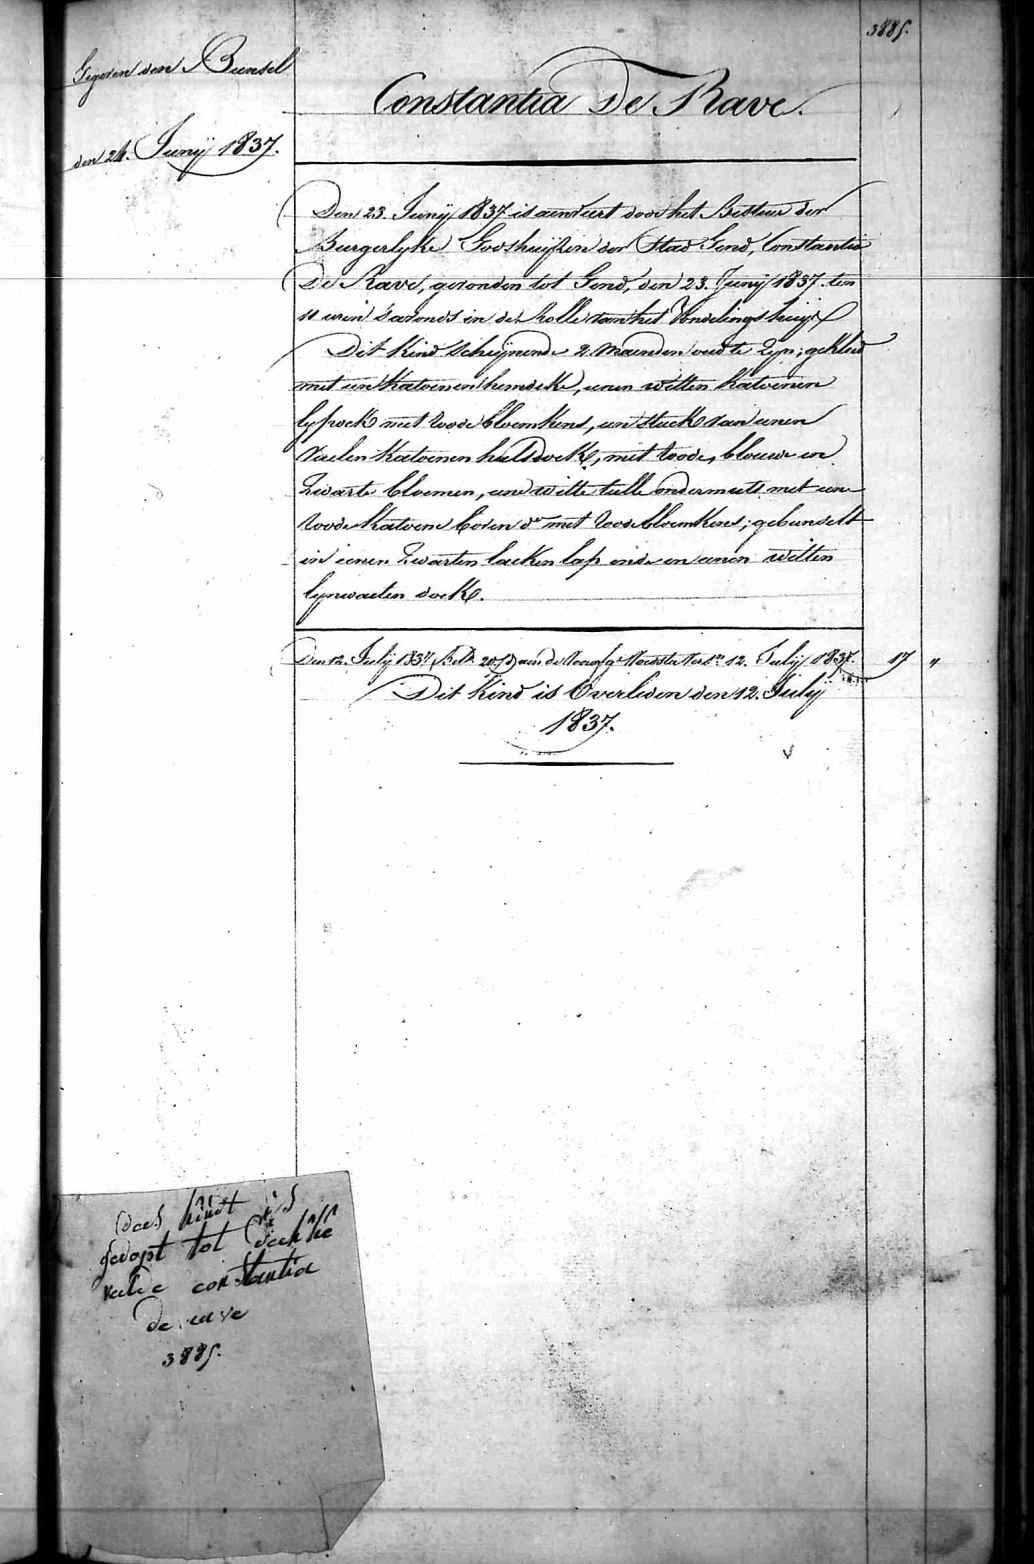 3885.
Gegeven den Bunsel
den 24. Junÿ 1837.
Constantia De Rave.
Den 23. Junÿ 1837 is aenveert door het Bestuer der
Burgerlyke Godshuijzen der Stad Gend, Constantia
De Rave, gevonden tot Gend, den 23. Junÿ 1837. ten
11 uren s'avonds in de Rolle van het Vondelingshuijs
Dit Kind scheijnende 2. Maenden oud te Zyn; gekleed
met een Katoenen hemdeke, eenen witten Katoenen
lyfrock met roode bloemkens, een stuck van eenen
vaelen Katoenen halsdoek, met roode, blouwe en
Zwarte bloemen, eene witte tulle ondermuts met eene
roode Katoene boven do met roode bloemkens; gebunselt
in eenen Zwarten laeken lap ende en eenen witten
lynwaeten doek.
Den 12. July 1837 aen de Voorsg. Voedster 12. July 1837. 17 "
Dit Kind is Overleden den 12. July
1837.
dees kindt is
gedopt tot
constantia
de rave
3885.